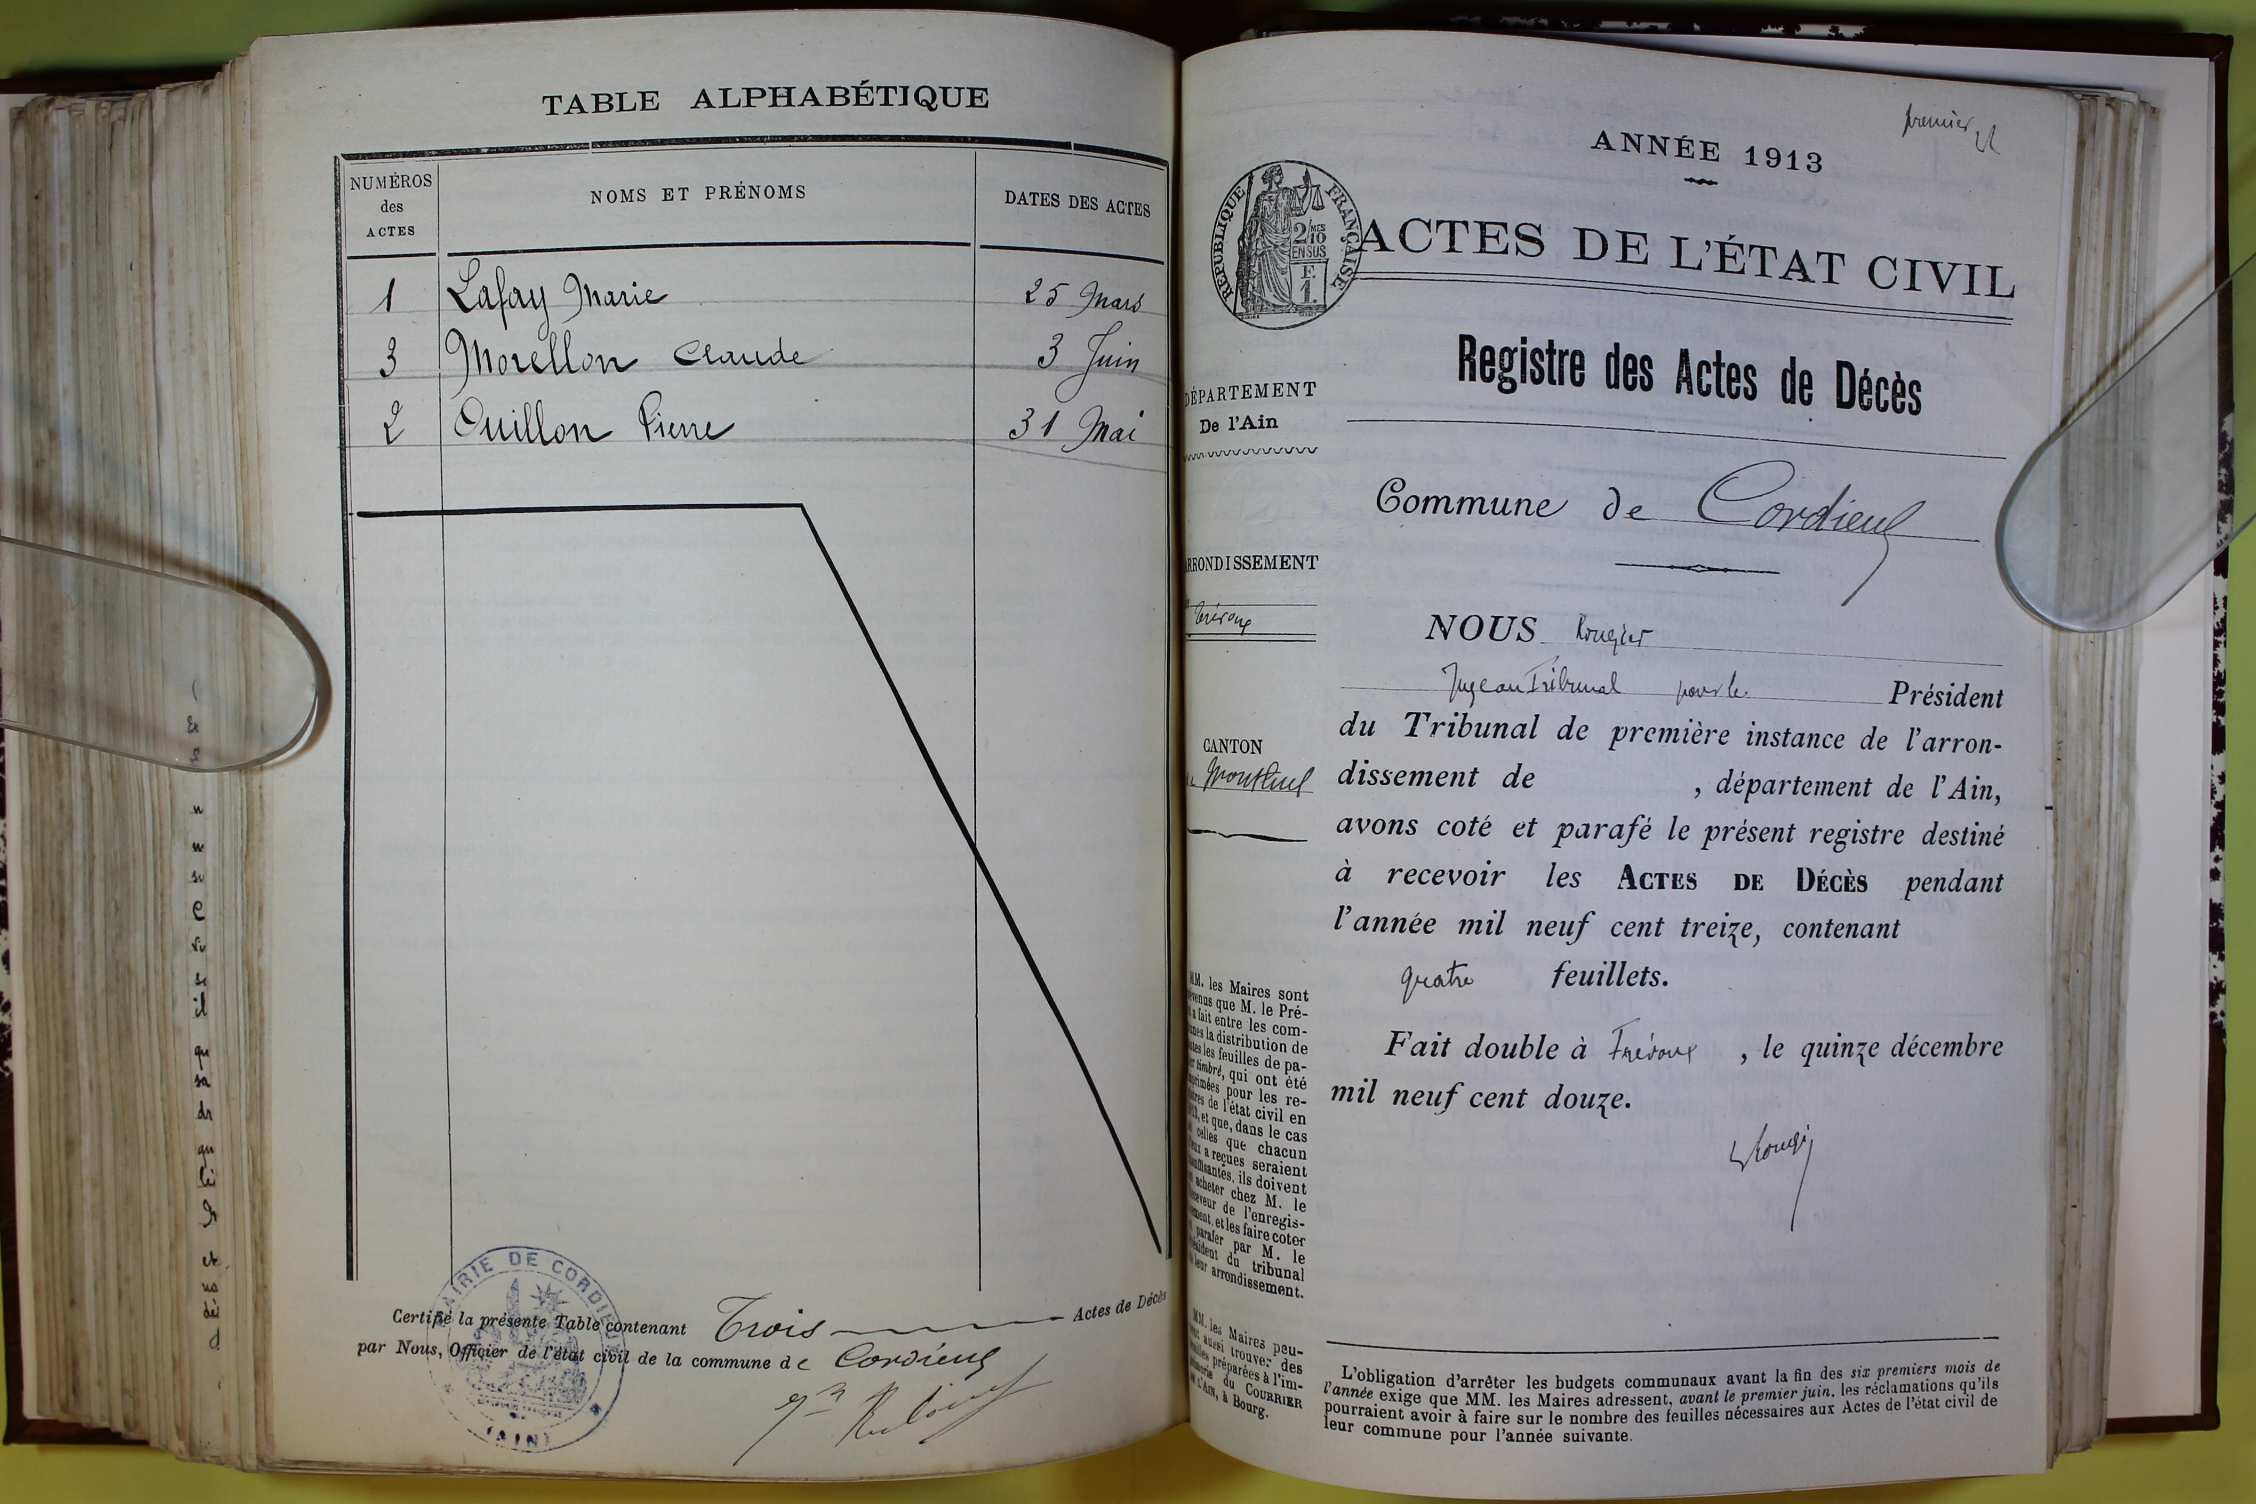 TABLE ALPHABÉTIQUE
NUMÉROS
des
ACTES
NOMS ET PRÉNOMS
DATES DES ACTES
1 Lafay Marie 25 Mars
3 Morellon Claude 3 Juin
2 Ouillon Pierre 31 Mai
Certifié la présente Table contenant Trois Actes de Décès
par Nous, Officier de l'état civil de la commune de Cordieux
MAIRIE DE CORDIEUX
(AIN)
premier
ANNÉE 1913
RÉPUBLIQUE FRANÇAISE
2/10
EN SUS
1
ACTES DE L'ÉTAT CIVIL
Registre des Actes de Décès
DÉPARTEMENT
De l'Ain
Commune de Cordieux
ARRONDISSEMENT
Trévoux
CANTON
de Montluel
NOUS Rougier
Juge au Tribunal pour le Président
du Tribunal de première instance de l'arron-
dissement de , département de l'Ain,
avons coté et parafé le présent registre destiné
à recevoir les ACTES DE DÉCÈS pendant
l'année mil neuf cent treize, contenant
quatre feuillets.
Fait double à Trévoux, le quinze décembre
mil neuf cent douze.
Rougi
MM. les Maires sont
que M. le Pré-
a fait entre les com-
la distribution de
les feuilles de pa-
timbré, qui ont été
pour les re-
de l'état civil en
et que, dans le cas
celles que chacun
a reçues seraient
ils doivent
acheter chez M. le
de l'enregis-
et les faire coter
parafer par M. le
du tribunal
leur arrondissement.
MM. les Maires peu-
aussi trouver des
préparées à l'im-
du COURRIER
à Bourg.
L'obligation d'arrêter les budgets communaux avant la fin des six premiers mois de
l'année exige que MM. les Maires adressent, avant le premier juin, les réclamations qu'ils
pourraient avoir à faire sur le nombre des feuilles nécessaires aux Actes de l'état civil de
leur commune pour l'année suivante.